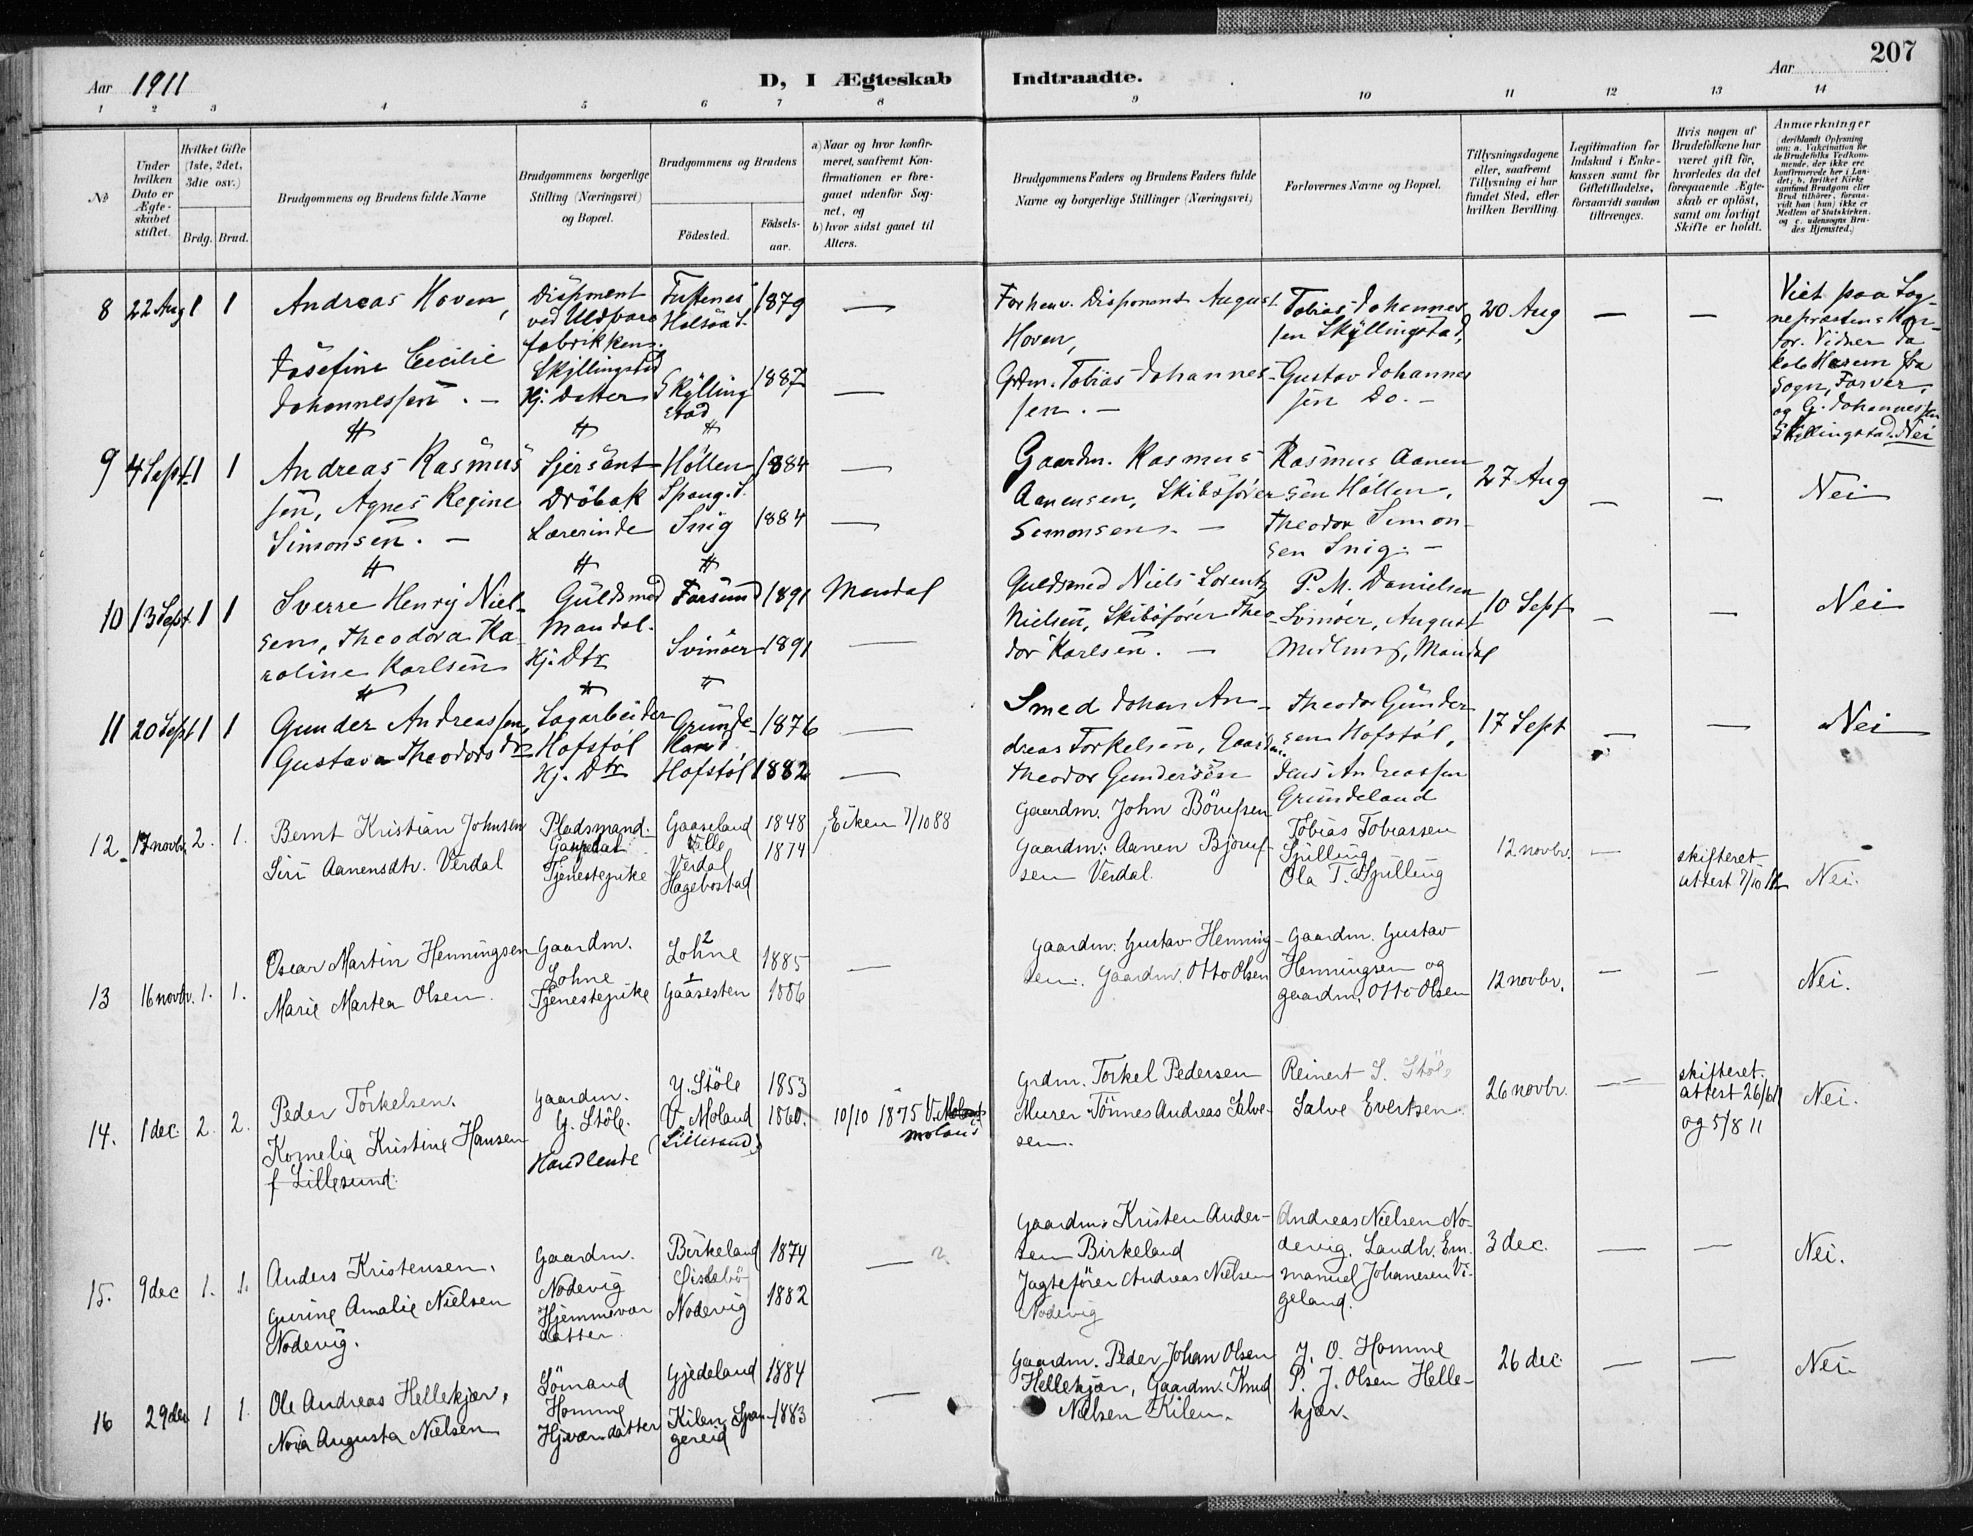 207
Aar 1911
D, I Ægteskab Indtraadte.
Aar
1 2 3 4 5 6 7 8 9 10 11 12 13 14
No
Under hvilken Dato er Ægteskabet stiftet.
Hvilket Gifte (1ste, 2det, 3die osv.)
Brdg. Brud.
Brudgommens og Brudens fulde Navne
Brudgommens borgerlige Stilling (Næringsvei) og Bopæl.
Brudgommens og Brudens
Fødested.
Fødselsaar.
a) Naar og hvor konfirmeret, saafremt Konfirmationen er foregaaet udenfor Sognet, og
b) hvor sidst gaaet til Alters.
Brudgommens Faders og Brudens Faders fulde Navne og borgerlige Stillinger (Næringsvei)
Forlovernes Navne og Bopæl.
Tillysningsdagene eller, saafremt Tillysning ei har fundet Sted, efter hvilken Bevilling.
Legitimation for Indskud i Enkekassen samt for Giftetilladelse, forsaavidt saadan tiltrænges.
Hvis nogen af Brudefolkene har været gift før, hvorledes da det foregaaende Ægteskab er opløst, samt om lovligt Skifte er holdt.
Anmærkninger
8 22 Aug 1 1
Andreas Hoven,
Josefine Cecilie
Johannessen. —
Disponent
ved Uldvare
fabrikken.
Skjllingstad
Hj. Datter
Holsöa S.
Skylling
stad
1879
1887
—
—
Forhenv. Disponent August
Hoven,
Grdm. Tobias Johannes-
sen. —
Tobias Johannes-
sen Skyllingstad,
Gustav Johannes
sen Do. —
20 Aug
— —
Viet paa Sog-
nepræstens Kon-
tor. Vidner Ja
Sogn, Farver,
og G. Johannessen
Skyllingstad. Nei
9 4 Sept 1 1
Andreas Rasmus
sen, Agnes Regine
Simonsen. —
Sjersant
Dröbak
Lærerinde
Höllen
Spang. S.
Snig
1884
1884
—
—
Gaardm. Rasmus
Aanensen, Skibsfører
Simonsen. —
Rasmus Aanen
sen Höllen,
Theodor Simon-
sen Snig. —
27 Aug
— —
Nei
10 13 Sept 1 1
Sverre Henry Niel-
sen, Theodora Ka-
roline Karlsen
Guldsmed
Mandal.
Hj. Dtr
Farsund
Svinöer
1891
1891
Mandal
—
Guldsmed Niels Lorentz
Nielsen, Skibsfører Theo-
dor Karlsen. —
P. M. Danielsen
Svinöer, August
Mandal
10 Sept
— —
Nei
11 20 Sept 1 1
Gunder Andreassen,
Gustava Theodors Dtr
Sagarbeider
Hofstöl
Hj. Dtr
Grunde-
land
Hofstöl
1876
1882
—
—
Smed Johan An-
dreas Torkelsen, Gaardm.
Theodor Gundersen
Theodor Gunder
sen Hofstöl,
Jens Andreassen
Grundeland
17 Sept
— —
Nei
12. 17 novbr. 2. 1.
Bernt Kristian Johnsen
Siri Aanensdtr. Verdal
Pladsmand.
Gaupdal
Tjenestepike
Gaaseland
Verdal
Hagebostad
1848
1874
Eiken 7/10 88
Gaardm. John Börufsen
Gaardm: Aanen Björuf-
sen Verdal.
Tobias Tobiassen
Spilling
Ola T. Spilling
12 novbr.
—
skifteret
attest 7/10 11
Nei.
13 16 novbr. 1. 1.
Oscar Martin Henningsen
Marie Martea Olsen.
Gaardm.
Lohne
Tjenestepike
Lohne
Gaasesten
1885
1886
—
Gaardm: Gustav Henning-
sen. Gaardm. Otto Olsen
Gaardm. Gustav
Henningsen og
gaardm. Otto Olsen
12 novbr.
— —
Nei.
14. 1 dec 2. 2.
Peder Torkelsen.
Kornelia Kristine Hansen
f Lillesund.
Gaardm.
Y. Stöle.
Handlende
Y. Stöle
V. Moland
(Lillesand)
1853
1860.
10/10 1875 V. Moland
Moland
Grdm. Torkel Pedersen
Murer Tönnes Andreas Salve-
sen.
Reinert S. Stöle
Salve Evertsen.
26 novbr.
—
skifteret.
attest 26/6 11
og 5/8 11
Nei.
15. 9 dec 1. 1.
Anders Kristensen.
Gurine Amalie Nielsen
Nodevig.
Gaardm.
Nodevig
Hjemmevær
datter.
Birkeland
Öislebö
Nodevig
1874
1882
— ?
Gaardm. Kristen Ander-
sen Birkeland
Jagtefører Andreas Nielsen
Nodevig
Andreas Nielsen No-
devig. Landh. Em-
manuel Johanesen Vi-
geland.
3 dec.
— —
Nei.
16 29 dec 1 1.
Ole Andreas Hellekjær,
Nora Augusta Nielsen
Sömand
Homme
Hjværsdatter
Gjedeland
Kilen Span-
gereid
1884
1883
—
Gaardm. Peder Johan Olsen
Hellekjær, Gaardm. Knud
Nielsen Kilen.
Y. O. Homme
P. J. Olsen Helle-
kjær.
26 dec
— —
Nei